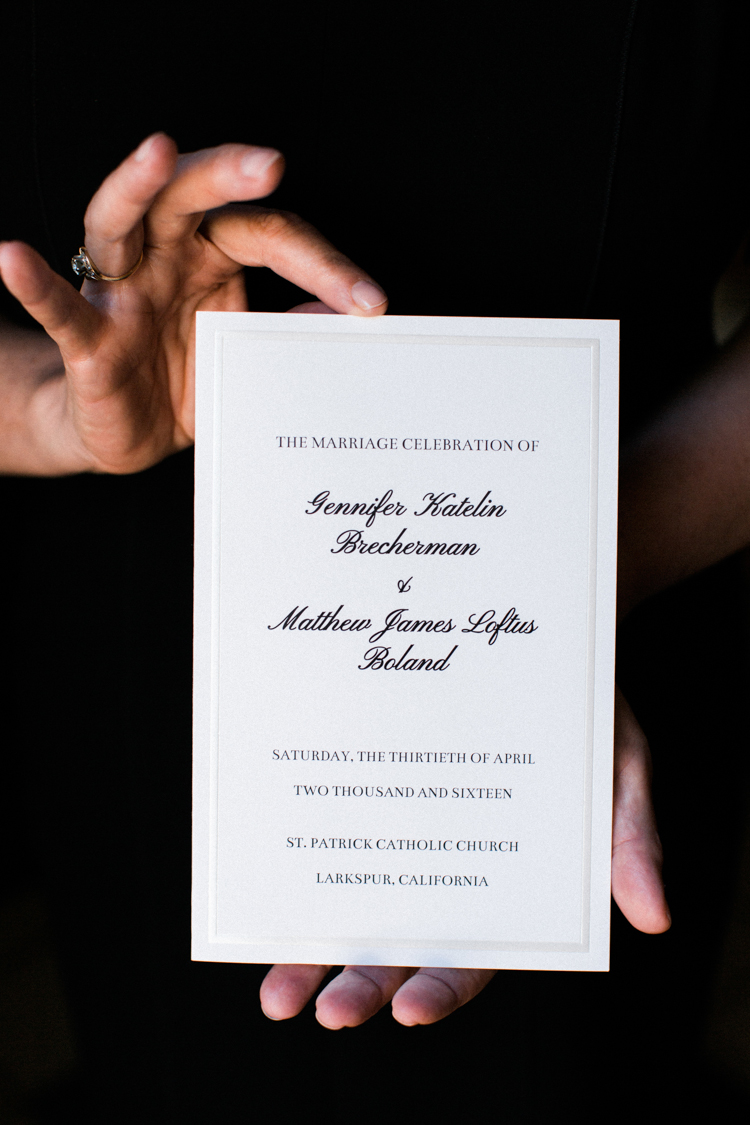 THE MARRIAGE CELEBRATION OF
Gennifer Katelin
Brecherman
&
Matthew James Loftus
Boland
SATURDAY, THE THIRTIETH OF APRIL
TWO THOUSAND AND SIXTEEN
ST. PATRICK CATHOLIC CHURCH
LARKSPUR, CALIFORNIA